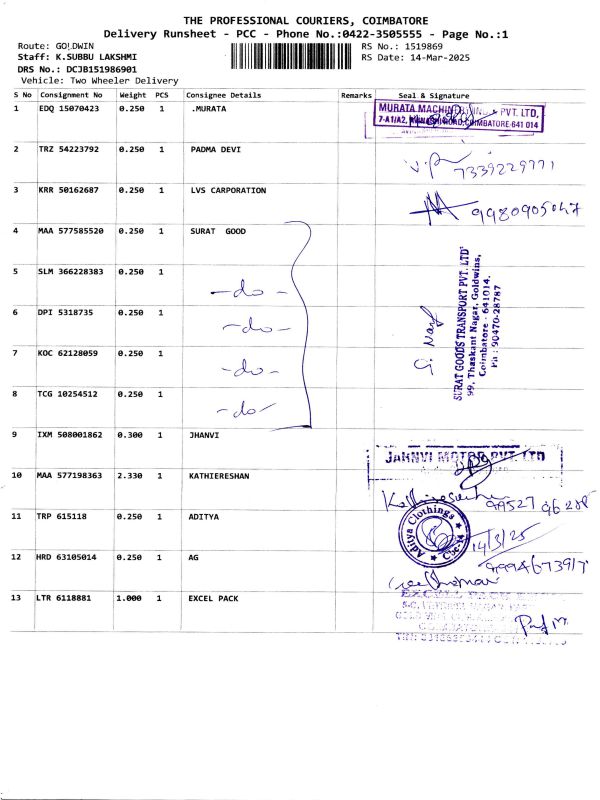 THE PROFESSIONAL COURIERS, COIMBATORE
Delivery Runsheet - PCC - Phone No.:0422-3505555 - Page No.:1
Route: GO!DWIN
RS No.: 1519869
Staff: K.SUBBU LAKSHMI
RS Date: 14-Mar-2025
DRS No.: DCJB151986901
Vehicle: Two Wheeler Delivery
S No Consignment No Weight PCS Consignee Details Remarks Seal & Signature
1 EDQ 15070423 0.250 1 .MURATA
MURATA MACHINERY PVT. LTD,
7-A1/A2, ROAD, COIMBATORE-641 014
2 TRZ 54223792 0.250 1 PADMA DEVI
7339229771
3 KRR 50162687 0.250 1 LVS CARPORATION
9980905047
4 MAA 577585520 0.250 1 SURAT GOOD
SURAT GOODS TRANSPORT PVT. LTD
99, Thaskant Nagar, Goldwins,
Coimbatore - 641014.
Ph : 90470-28787
5 SLM 366228383 0.250 1 -do-
6 DPI 5318735 0.250 1 -do-
7 KOC 62128059 0.250 1 -do-
8 TCG 10254512 0.250 1 -do-
9 IXM 508001862 0.300 1 JHANVI
JAHNVI MOTOR PVT. LTD
10 MAA 577198363 2.330 1 KATHIERESHAN
99527 96288
11 TRP 615118 0.250 1 ADITYA
Aditya Clothings
Cbe-14
14/3/25
12 HRD 63105014 0.250 1 AG
13 LTR 6118881 1.000 1 EXCEL PACK
EXCEL PACK